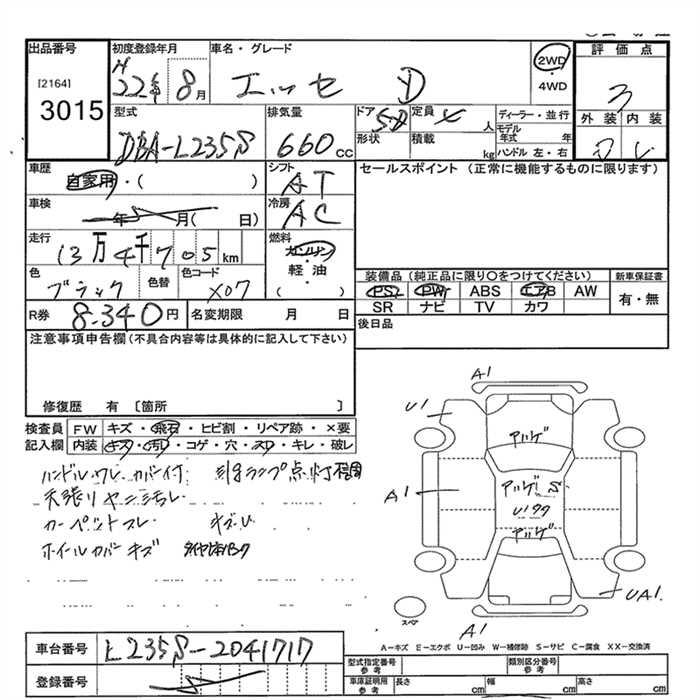 出品番号
[2164]
3015
初度登録年月
H
22年 8月
車名・グレード
エッセ D
2WD
・
4WD
評価点
3
型式
DBA-L235S
排気量
660cc
ドア 5D
形状
定員 4人
積載 kg
ディーラー・並行
モデル年式 年
ハンドル 左・右
外装 内装
車歴
自家用・( )
シフト
AT
セールスポイント (正常に機能するものに限ります)
車検
年 月( 日)
冷房
AC
走行
13万4千705km
燃料
ガソリン
・
軽・油
( )
色
ブラック
色替
色コード
X07
装備品(純正品に限り○をつけてください)
PS PW ABS エアB AW
SR ナビ TV カワ
新車保証書
有・無
R券
8.340円
名変期限 月 日
後日品
注意事項申告欄(不具合内容等は具体的に記入して下さい)
修復歴 有 〔箇所 〕
検査員記入欄
FW キズ・飛石・ヒビ割・リペア跡・×要
内装 キズ・汚レ・コゲ・穴・スレ・キレ・破レ
ハンドルスレ カバー付
天張りヤニ汚レ
カーペットスレ キズU
ホイールカバーキズ
A1
U1
アバゲ
A1
アバゲ S
アバゲ
UA1
A1
スペア
A-キズ E-エクボ U-凹み W-補修跡 S-サビ C-腐食 XX-交換済
車台番号
L235S-2041717
登録番号
型式指定番号
参考
類別区分番号
参考
車庫証明用
参考
長さ cm
幅 cm
高さ cm